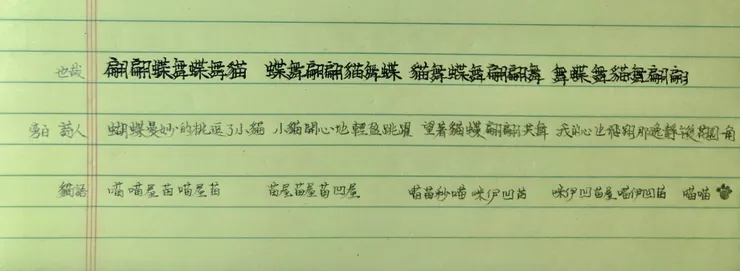 也哉 翩翩蝶舞蝶舞貓 蝶舞翩翩貓舞蝶 貓舞蝶舞翩翩舞 舞蝶舞貓舞翩翩
旁白 詩人 蝴蝶曼妙的挑逗了小貓 小貓開心地輕盈跳躍 望著貓蝶翩翩共舞 我的心也飛翔那寧靜後花園角
貓語 喵喵屋苗喵屋苗 苗屋苗屋苗凹屋 喵苗秒喵咪伊凹苗 咪伊凹苗屋喵伊凹苗 喵喵